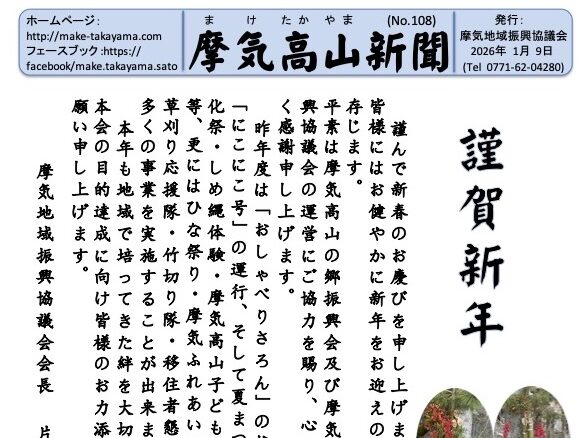 ホームページ:
http://make-takayama.com
フェースブック:https://
facebook/make.takayama.sato
まけたかやま
(No.108)
摩気高山新聞
発行:
摩気地域振興協議会
2026年 1月 9日
(Tel 0771-62-04280)
謹賀新年
謹んで新春のお慶びを申し上げま
皆様にはお健やかに新年をお迎えの
存じます。
平素は摩気高山の郷振興会及び摩気
興協議会の運営にご協力を賜り、心
く感謝申し上げます。
昨年度は「おしゃべりさろん」の
「にこにこ号」の運行、そして夏まつ
化祭・しめ縄体験・摩気高山子ども
等、更にはひな祭り・摩気ふれあい
草刈り応援隊・竹切り隊・移住者懇
多くの事業を実施することが出来ま
本年も地域で培ってきた絆を大切
本会の目的達成に向け皆様のお力添
願い申し上げます。
摩気地域振興協議会会長 片